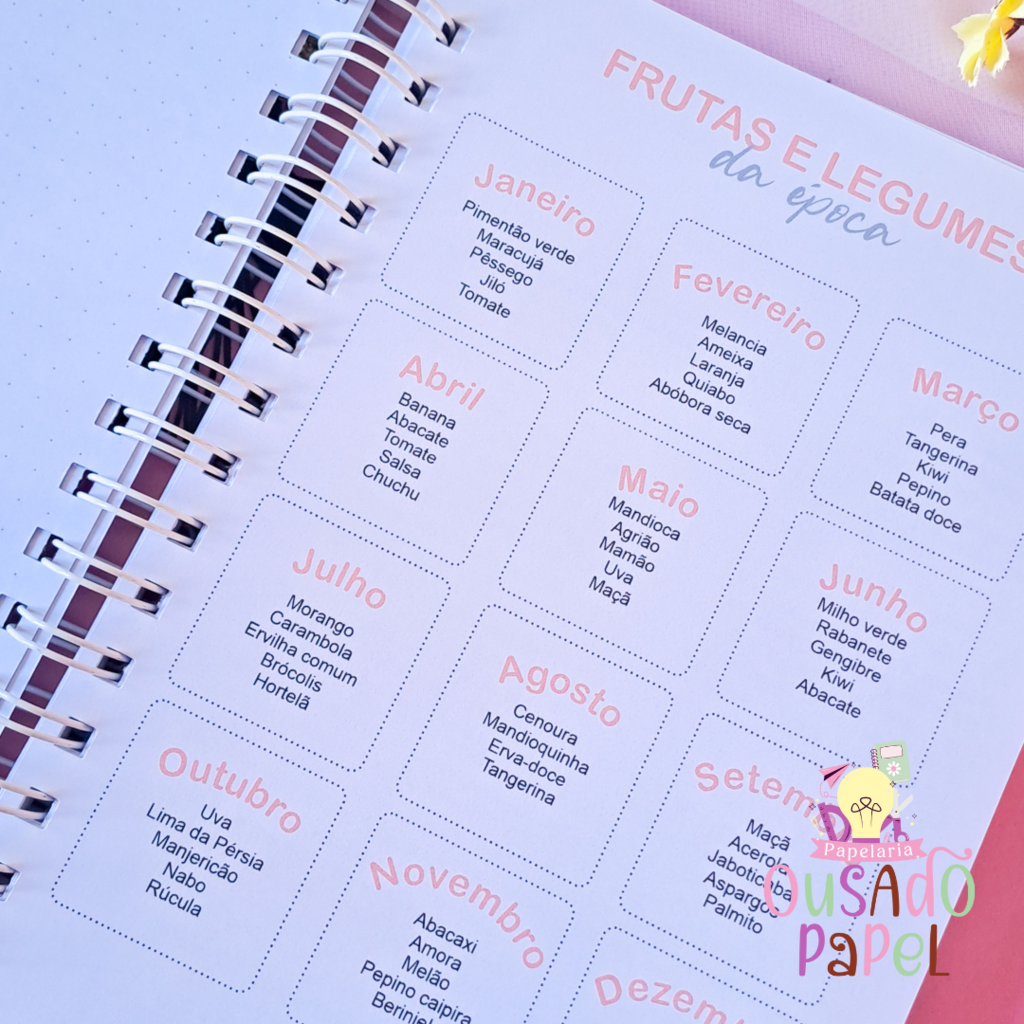 FRUTAS E LEGUMES
da época
Janeiro
Pimentão verde
Maracujá
Pêssego
Jiló
Tomate
Fevereiro
Melancia
Ameixa
Laranja
Quiabo
Abóbora seca
Março
Pera
Tangerina
Kiwi
Pepino
Batata doce
Abril
Banana
Abacate
Tomate
Salsa
Chuchu
Maio
Mandioca
Agrião
Mamão
Uva
Maçã
Junho
Milho verde
Rabanete
Gengibre
Kiwi
Abacate
Julho
Morango
Carambola
Ervilha comum
Brócolis
Hortelã
Agosto
Cenoura
Mandioquinha
Erva-doce
Tangerina
Setem
Maçã
Acerola
Jaboticaba
Aspargos
Palmito
Outubro
Uva
Lima da Pérsia
Manjericão
Nabo
Rúcula
Novembro
Abacaxi
Amora
Melão
Pepino caipira
Dezem
Papelaria
OUSADO
PAPEL